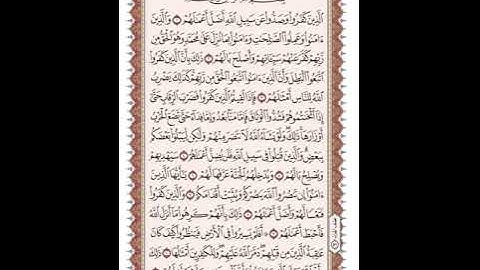 ٱلَّذِينَ كَفَرُوا۟ وَصَدُّوا۟ عَن سَبِيلِ ٱللَّهِ أَضَلَّ أَعْمَٰلَهُمْ ۝ وَٱلَّذِينَ
ءَامَنُوا۟ وَعَمِلُوا۟ ٱلصَّٰلِحَٰتِ وَءَامَنُوا۟ بِمَا نُزِّلَ عَلَىٰ مُحَمَّدٍ وَهُوَ ٱلْحَقُّ مِن
رَّبِّهِمْ كَفَّرَ عَنْهُمْ سَيِّـَٔاتِهِمْ وَأَصْلَحَ بَالَهُمْ ۝ ذَٰلِكَ بِأَنَّ ٱلَّذِينَ كَفَرُوا۟
ٱتَّبَعُوا۟ ٱلْبَٰطِلَ وَأَنَّ ٱلَّذِينَ ءَامَنُوا۟ ٱتَّبَعُوا۟ ٱلْحَقَّ مِن رَّبِّهِمْ كَذَٰلِكَ يَضْرِبُ
ٱللَّهُ لِلنَّاسِ أَمْثَٰلَهُمْ ۝ فَإِذَا لَقِيتُمُ ٱلَّذِينَ كَفَرُوا۟ فَضَرْبَ ٱلرِّقَابِ حَتَّىٰٓ
إِذَآ أَثْخَنتُمُوهُمْ فَشُدُّوا۟ ٱلْوَثَاقَ فَإِمَّا مَنًّۢا بَعْدُ وَإِمَّا فِدَآءً حَتَّىٰ تَضَعَ ٱلْحَرْبُ
أَوْزَارَهَا ذَٰلِكَ وَلَوْ يَشَآءُ ٱللَّهُ لَٱنتَصَرَ مِنْهُمْ وَلَٰكِن لِّيَبْلُوَا۟ بَعْضَكُم
بِبَعْضٍ وَٱلَّذِينَ قُتِلُوا۟ فِى سَبِيلِ ٱللَّهِ فَلَن يُضِلَّ أَعْمَٰلَهُمْ ۝ سَيَهْدِيهِمْ
وَيُصْلِحُ بَالَهُمْ ۝ وَيُدْخِلُهُمُ ٱلْجَنَّةَ عَرَّفَهَا لَهُمْ ۝ يَٰٓأَيُّهَا ٱلَّذِينَ
ءَامَنُوٓا۟ إِن تَنصُرُوا۟ ٱللَّهَ يَنصُرْكُمْ وَيُثَبِّتْ أَقْدَامَكُمْ ۝ وَٱلَّذِينَ كَفَرُوا۟
فَتَعْسًا لَّهُمْ وَأَضَلَّ أَعْمَٰلَهُمْ ۝ ذَٰلِكَ بِأَنَّهُمْ كَرِهُوا۟ مَآ أَنزَلَ ٱللَّهُ
فَأَحْبَطَ أَعْمَٰلَهُمْ ۝ أَفَلَمْ يَسِيرُوا۟ فِى ٱلْأَرْضِ فَيَنظُرُوا۟ كَيْفَ كَانَ
عَٰقِبَةُ ٱلَّذِينَ مِن قَبْلِهِمْ دَمَّرَ ٱللَّهُ عَلَيْهِمْ وَلِلْكَٰفِرِينَ أَمْثَٰلُهَا ۝ ذَٰلِكَ